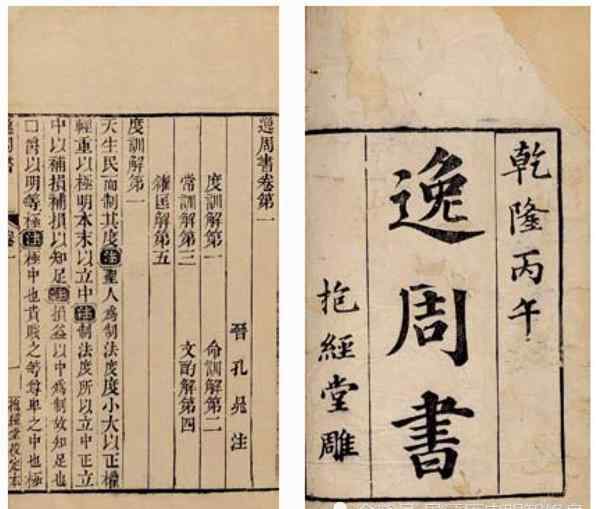 乾隆丙午
逸周書
抱經堂雕
逸周書卷第一
晉孔晁注
度訓解第一 命訓解第二
常訓解第三 文酌解第四
糴匡解第五
度訓解第一
天生民而制其度注聖人爲制法度度小大以正權
輕重以極明本末以立中注制法度所以立中正立
中以補損補損以知足注損益以中爲制故知足也
□爵以明等極注極中也貴賤之等尊卑之中也極
抱經堂校定本